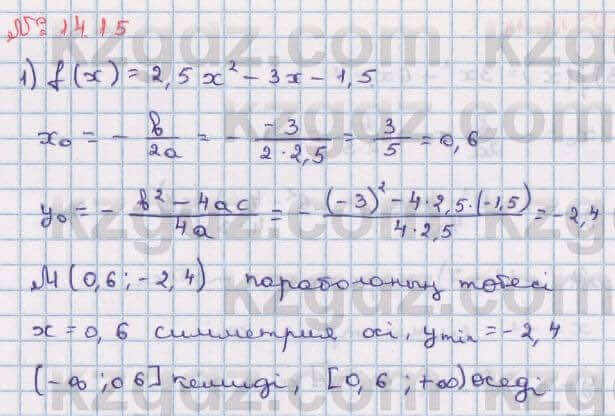 № 14.15
1) f(x) = 2,5x² - 3x - 1,5
x₀ = - b/2a = - -3/2·2,5 = 3/5 = 0,6
y₀ = - b² - 4ac/4a = - (-3)² - 4·2,5·(-1,5)/4·2,5 = -2,4
M(0,6; -2,4) параболаның төбесі
x = 0,6 симметрия осі, y min = -2,4
(-∞; 0 6] кемиді, [0,6; +∞) өседі
kzgdz.com